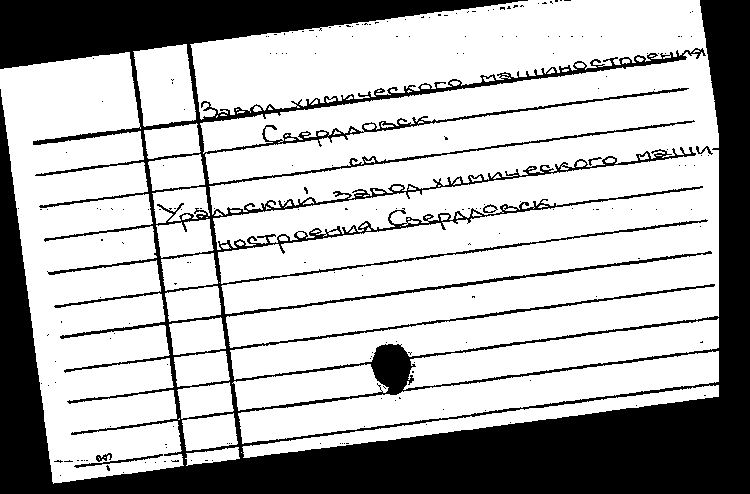 Завод химического машиностроения
Свердловск.
см.
Уральский завод химического маши-
ностроения. Свердловск.